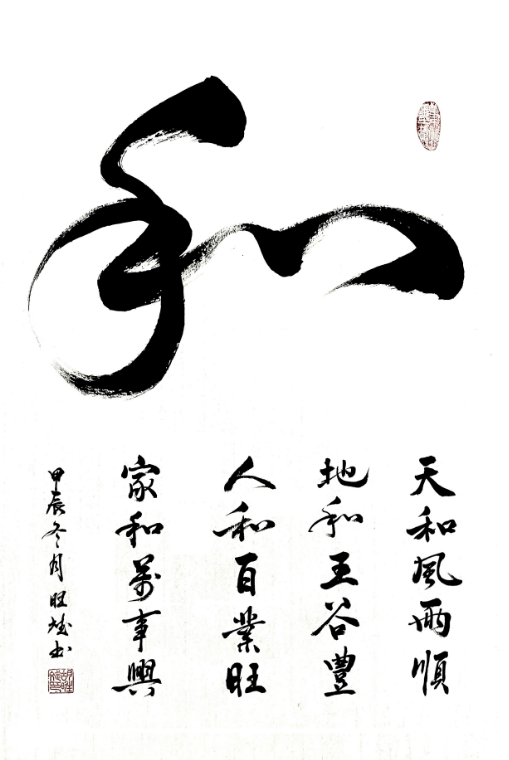 和
天和風雨順
地和五谷豐
人和百業旺
家和萬事興
甲辰冬月旺书